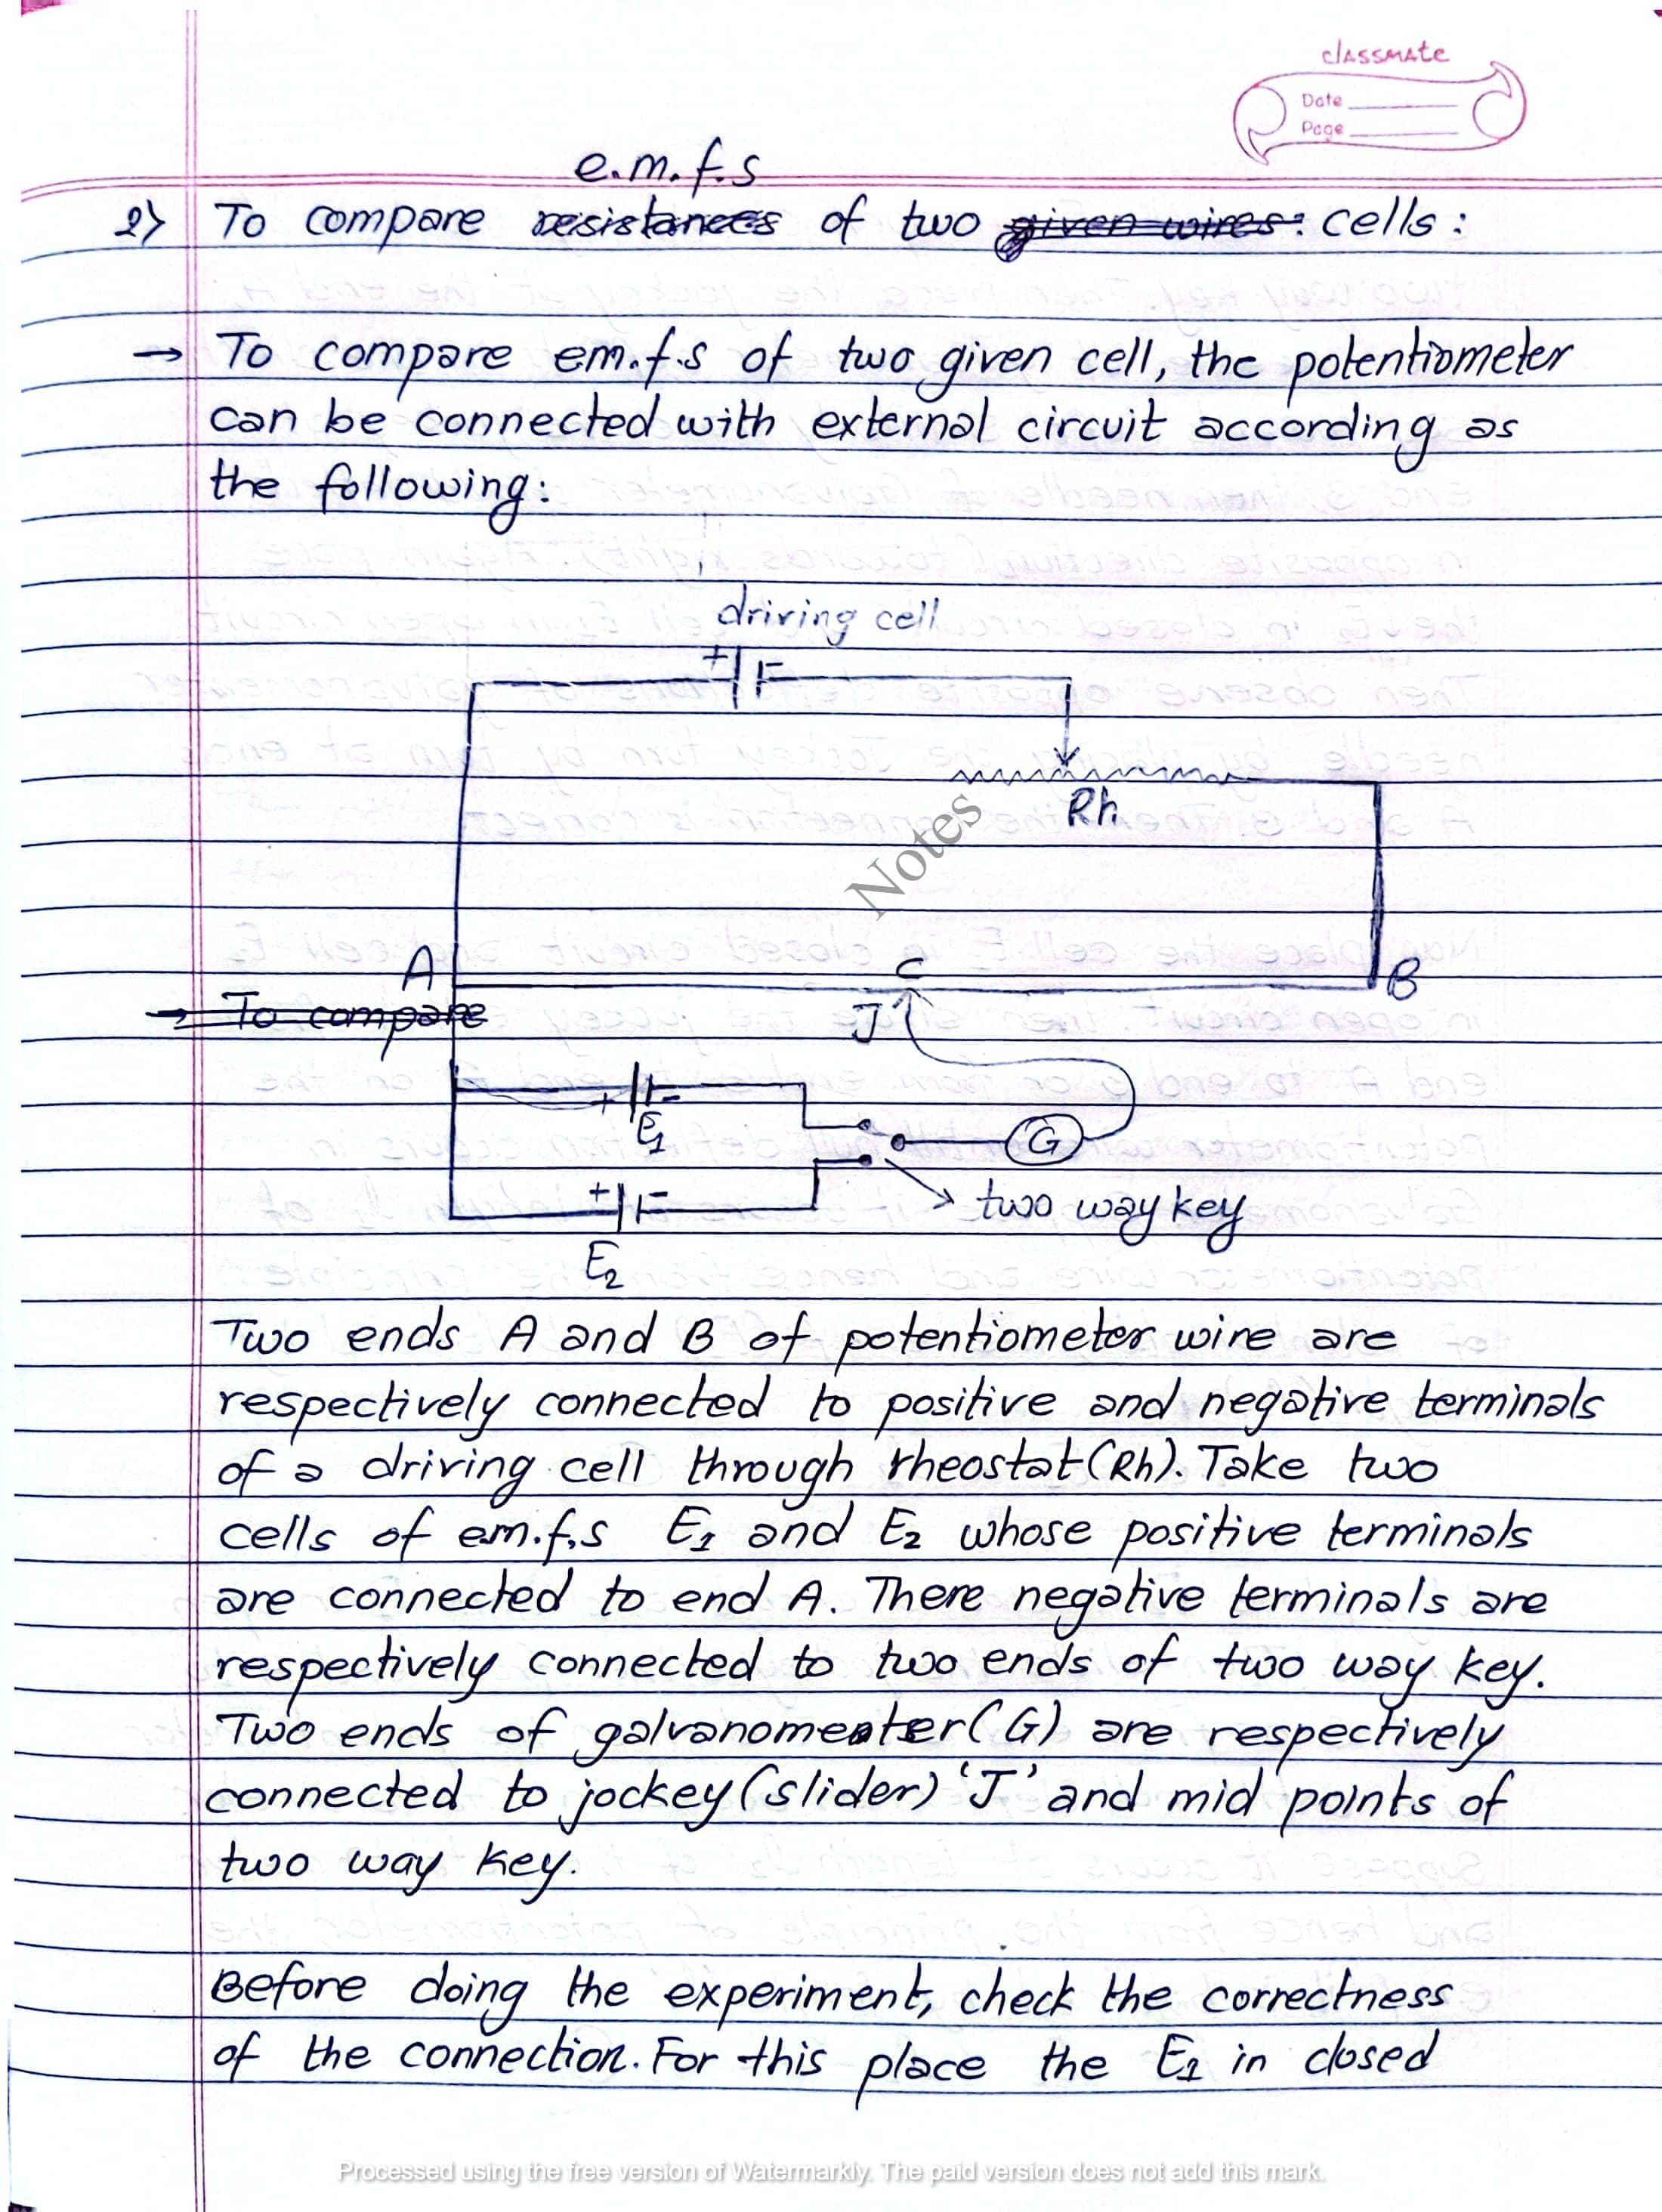 classmate
Date
Page
e.m.f.s
2> To compare resistances of two given wires: cells:
→ To compare em.f.s of two given cell, the potentiometer
can be connected with external circuit according as
the following:
driving cell
+ -
Rh
Notes
A C B
→ To compare
J
+ -
E1
G
+ - two way key
E2
Two ends A and B of potentiometer wire are
respectively connected to positive and negative terminals
of a driving cell through rheostat (Rh). Take two
cells of em.f.s E1 and E2 whose positive terminals
are connected to end A. There negative terminals are
respectively connected to two ends of two way key.
Two ends of galvanometer (G) are respectively
connected to jockey (slider) 'J' and mid points of
two way key.
Before doing the experiment, check the correctness
of the connection. For this place the E1 in closed
Processed using the free version of Watermarkly. The paid version does not add this mark.